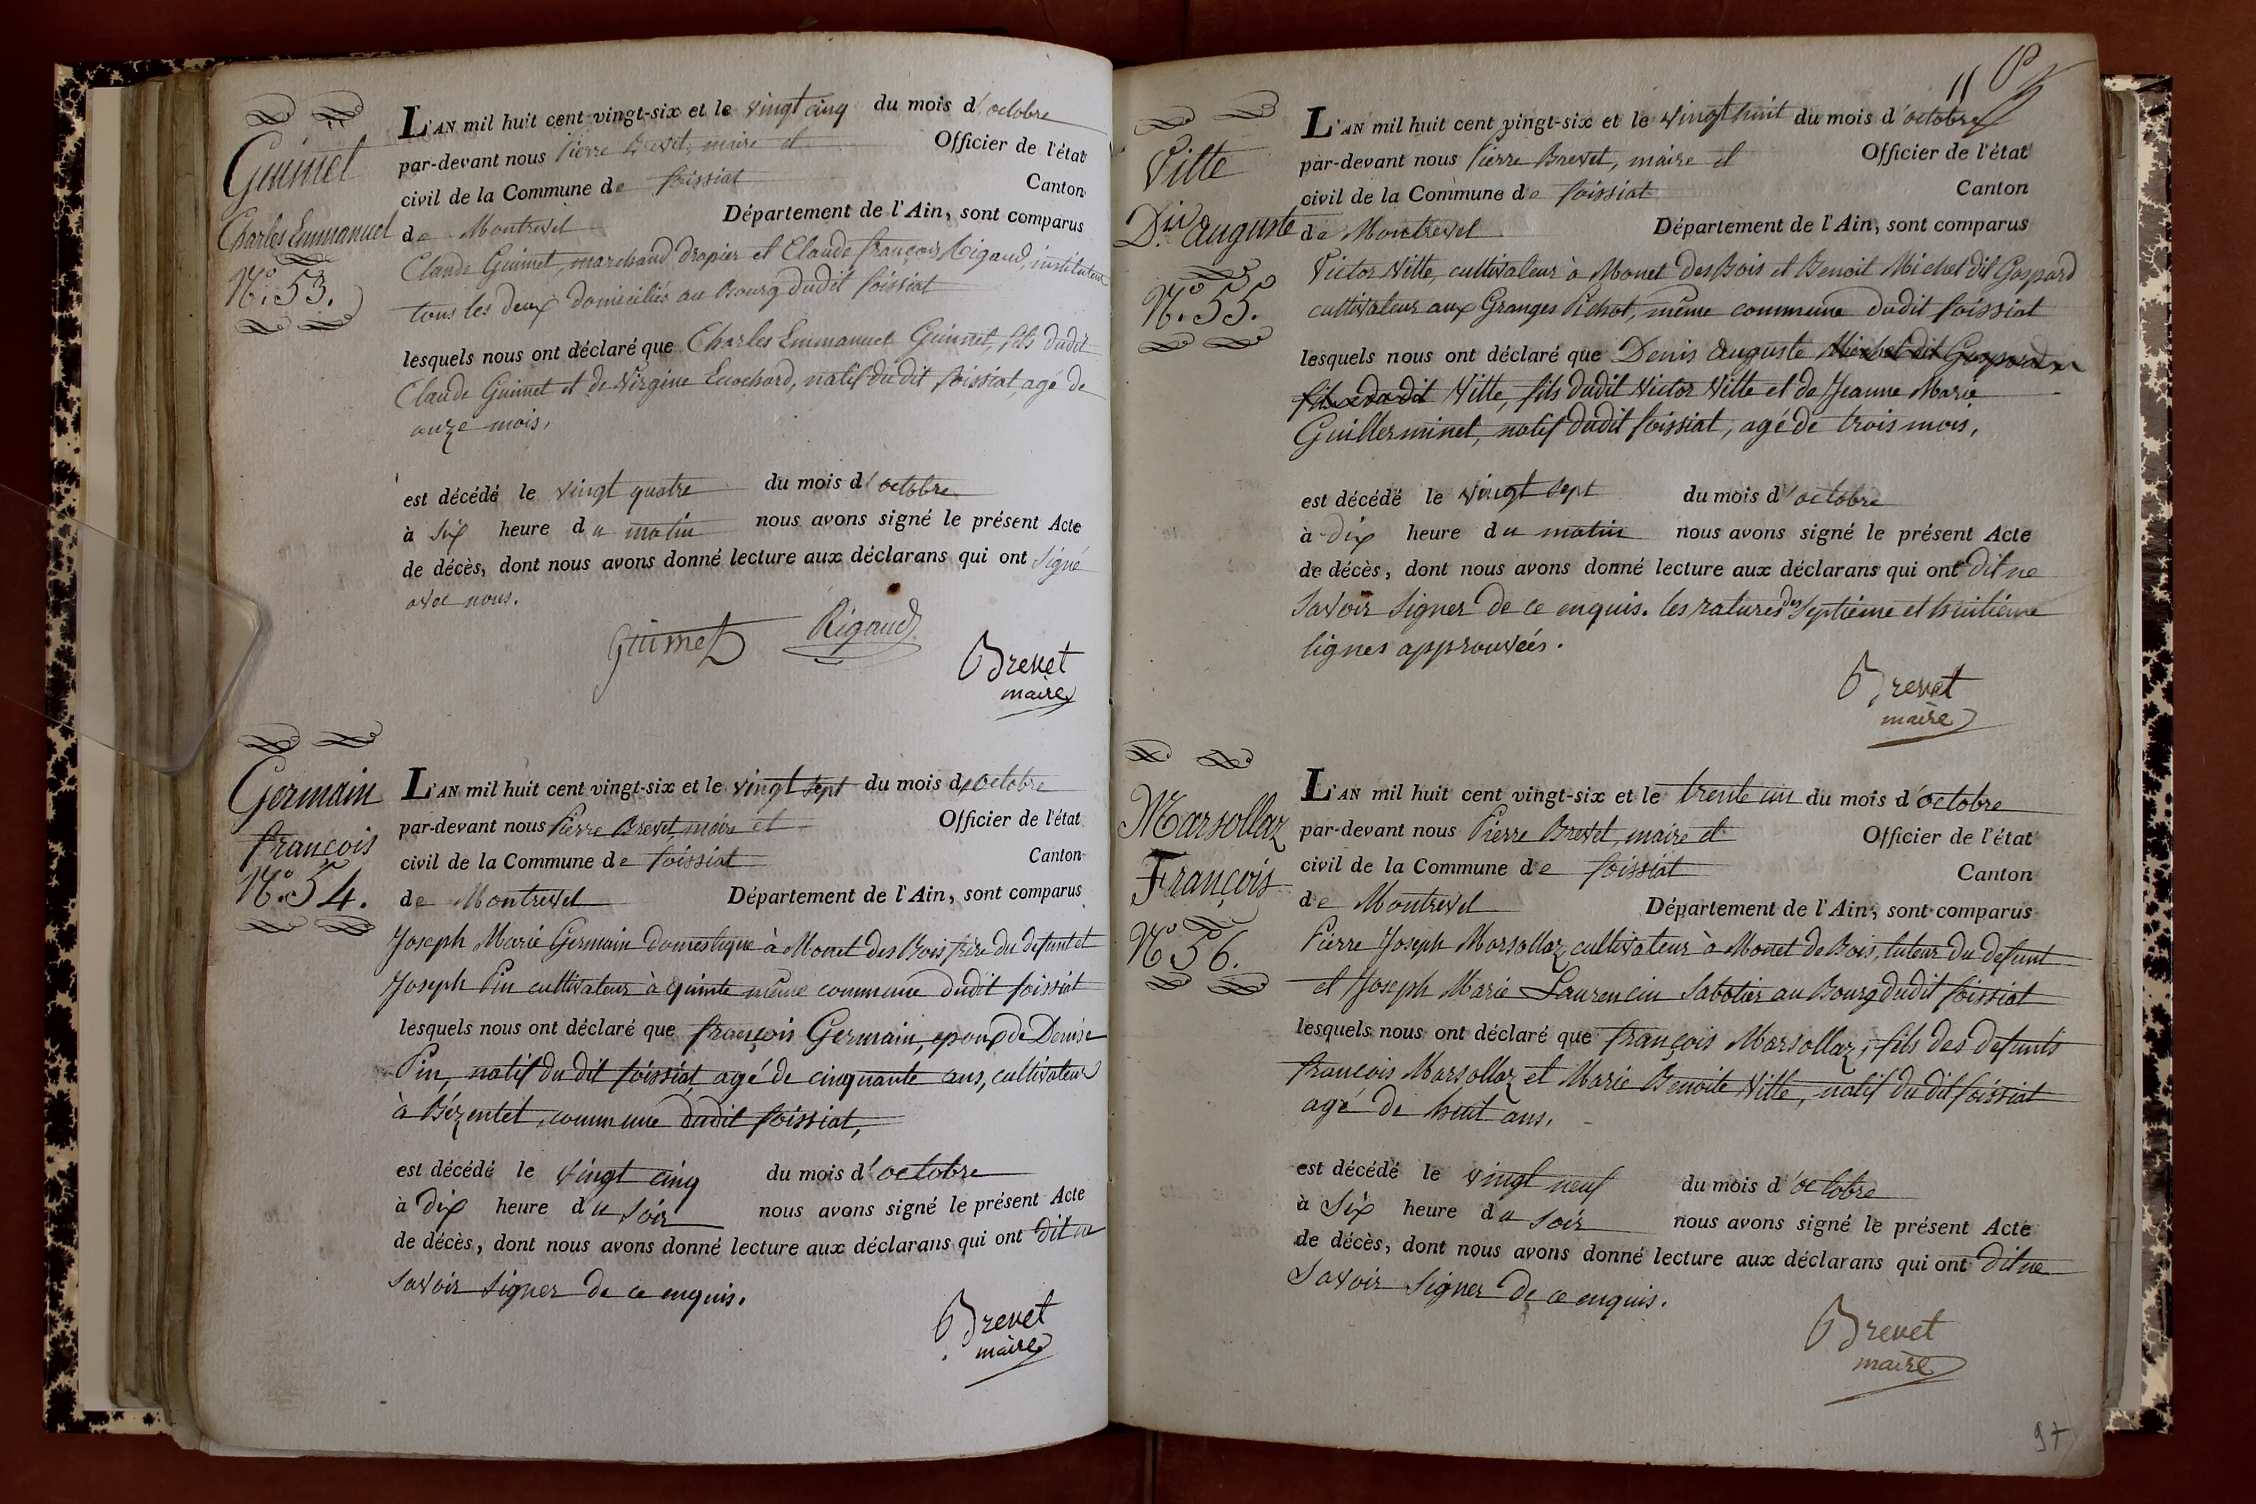 Guimet
Charles Emmanuel
N.° 53.
L'AN mil huit cent vingt-six et le vingt cinq du mois d'octobre
par-devant nous Pierre Brevet, maire et Officier de l'état
civil de la Commune de foissiat Canton
de Montrevel Département de l'Ain, sont comparus
Claude Guimet, marchand drapier et Claude françois Rigaud, instituteur
tous les deux domiciliés au Bourg dudit foissiat
lesquels nous ont déclaré que Charles Emmanuel Guimet, fils dudit
Claude Guimet et de Virgine Ecochard, natif du dit foissiat, agé de
onze mois,
est décédé le vingt quatre du mois d'octobre
à six heure du matin nous avons signé le présent Acte
de décès, dont nous avons donné lecture aux déclarans qui ont signé
avec nous.
Guimet Rigaud
Brevet
maire
Germain
françois
N.° 54.
L'AN mil huit cent vingt-six et le vingt sept du mois d'octobre
par-devant nous Pierre Brevet maire et Officier de l'état
civil de la Commune de foissiat Canton
de Montrevel Département de l'Ain, sont comparus
Joseph Marie Germain domestique à Monet des Bois frère du defunt et
Joseph Pin cultivateur à quinte même commune dudit foissiat
lesquels nous ont déclaré que françois Germain, epoux de Denise
Pin, natif du dit foissiat, agé de cinquante ans, cultivateur
à Bézentet, commune dudit foissiat,
est décédé le vingt cinq du mois d'octobre
à dix heure du soir nous avons signé le présent Acte
de décès, dont nous avons donné lecture aux déclarans qui ont dit ne
savoir signer de ce enquis.
Brevet
maire
Vitte
D.is auguste
N.° 55.
L'AN mil huit cent vingt-six et le vingt huit du mois d'octobre
par-devant nous Pierre Brevet, maire et Officier de l'état
civil de la Commune de foissiat Canton
de Montrevel Département de l'Ain, sont comparus
Victor Vitte, cultivateur à Monet des Bois et Benoit Michel dit Gaspard
cultivateur aux Granges Pichot, même commune dudit foissiat
lesquels nous ont déclaré que Denis auguste Michel dit Gaspard
fils dudit Vitte, fils dudit Victor Vitte et de Jeanne Marie
Guillerminet, natif dudit foissiat, agé de trois mois,
est décédé le vingt sept du mois d'octobre
à dix heure du matin nous avons signé le présent Acte
de décès, dont nous avons donné lecture aux déclarans qui ont dit ne
savoir signer de ce enquis. les ratures des septième et huitième
lignes approuvées.
Brevet
maire
Marsollaz
François
N.° 56.
L'AN mil huit cent vingt-six et le trente un du mois d'octobre
par-devant nous Pierre Brevet, maire et Officier de l'état
civil de la Commune de foissiat Canton
de Montrevel Département de l'Ain, sont comparus
Pierre Joseph Marsollaz cultivateur à Monet de Bois, tuteur du defunt
et Joseph Marie Laurencin Sabotier au Bourg dudit foissiat
lesquels nous ont déclaré que françois Marsollaz, fils des defunts
françois Marsollaz et Marie Benoite Vitte, natif du dit foissiat
agé de huit ans.
est décédé le vingt neuf du mois d'octobre
à Six heure du soir nous avons signé le présent Acte
de décès, dont nous avons donné lecture aux déclarans qui ont dit ne
Savoir signer de ce enquis.
Brevet
maire
97